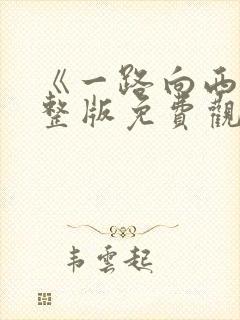 《一路向西
整版免費觀
韦雲起